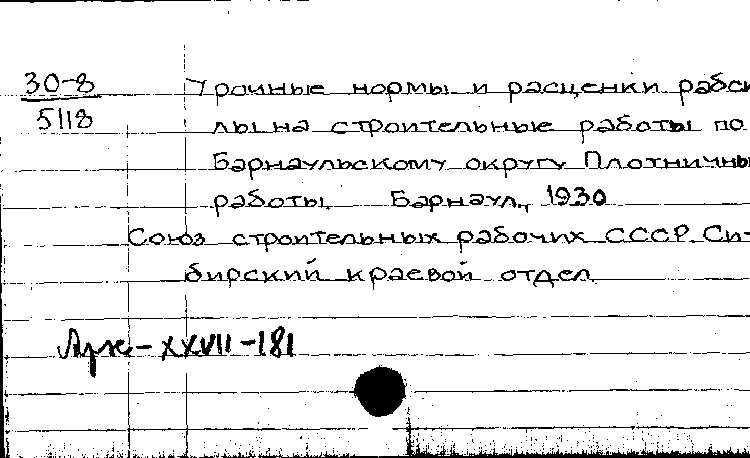 30-8
5118
Урочные нормы и расценки рабси
лы на строительные работы по
Барнаульскому округу Плотничны
работы. Барнаул, 1930
Союз строительных рабочих СССР. Си-
бирский краевой отдел.
Арх-XXVII-181